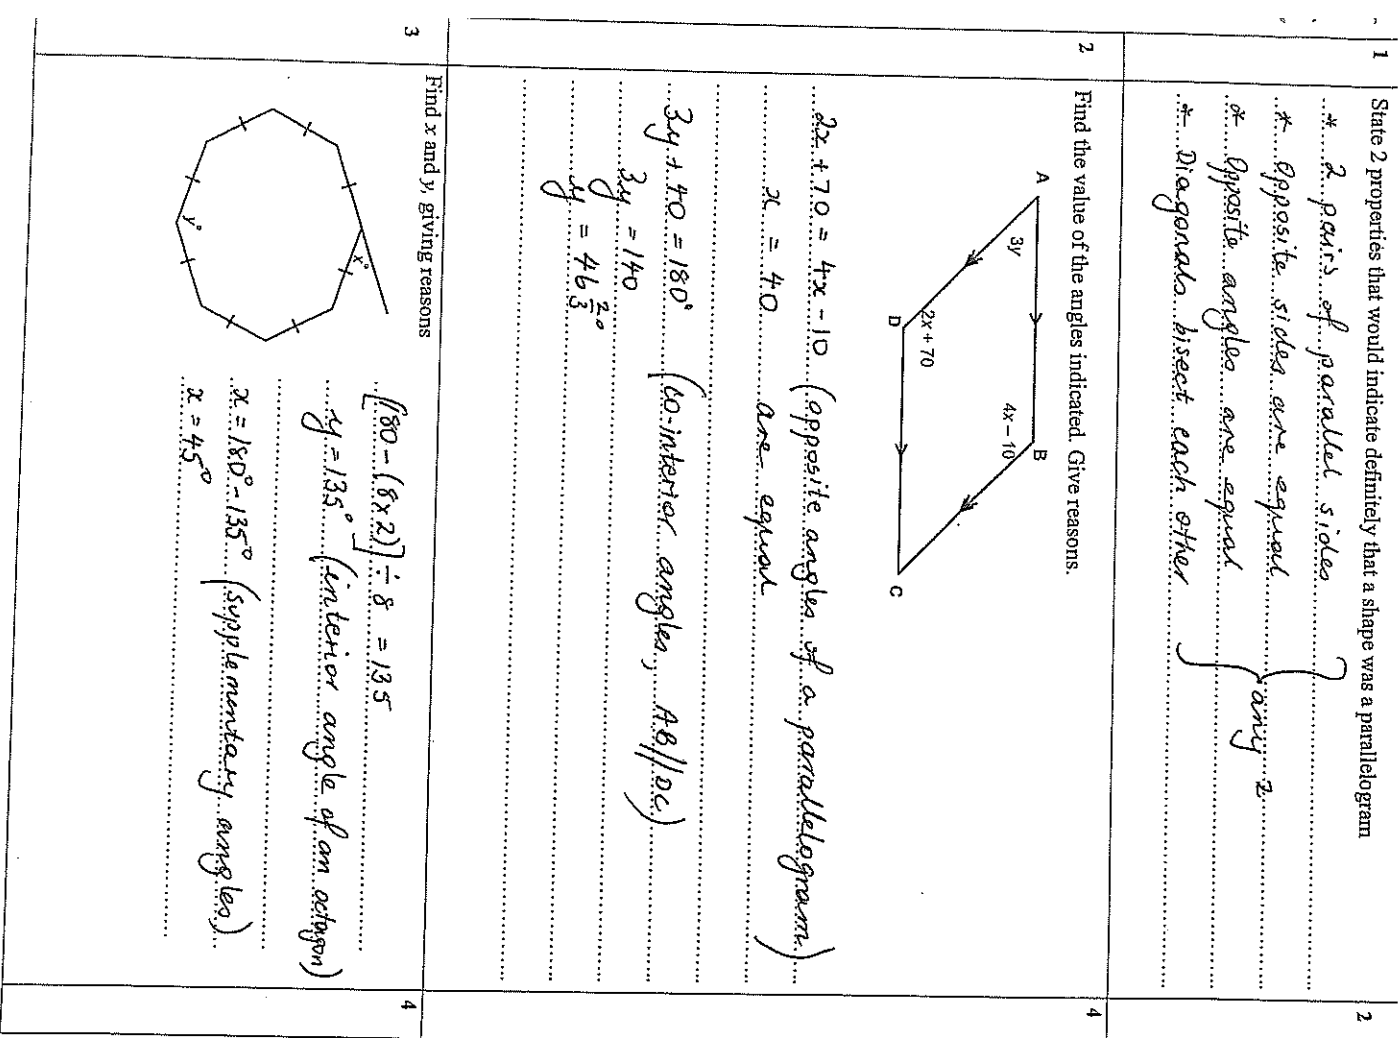 1 State 2 properties that would indicate definitely that a shape was a parallelogram 2
* 2 pairs of parallel sides
* Opposite sides are equal
* Opposite angles are equal
* Diagonals bisect each other
} any 2
2 Find the value of the angles indicated. Give reasons. 4
A
B
3y
4x – 10
2x + 70
D
C
2x + 70 = 4x - 10 (opposite angles of a parallelogram)
x = 40 are equal
3y + 40 = 180° (co-interior angles, AB//DC)
3y = 140
y = 46 2/3°
3 Find x and y, giving reasons 4
x°
y°
[180 - (8x2)] ÷ 8 = 135
y = 135° (interior angle of an octagon)
x = 180° - 135° (supplementary angles)
x = 45°